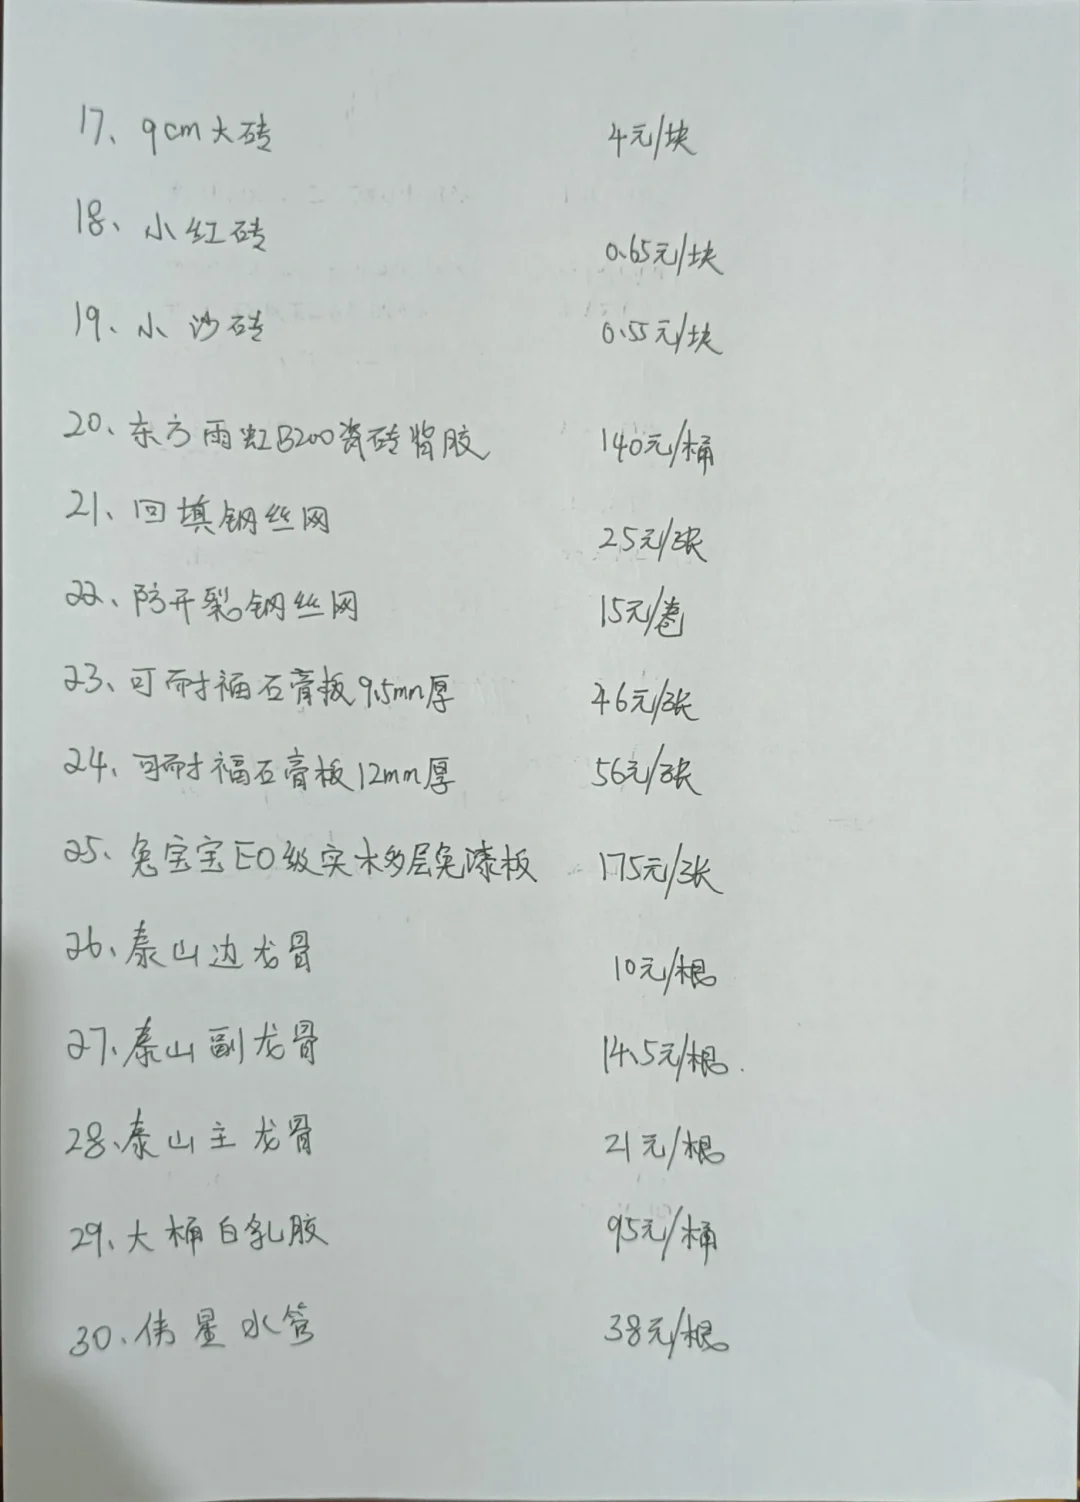 17、9cm大砖 4元/块
18、小红砖 0.65元/块
19、小沙砖 0.55元/块
20、东方雨虹B200瓷砖背胶 140元/桶
21、回填钢丝网 25元/张
22、防开裂钢丝网 15元/卷
23、可耐福石膏板9.5mm厚 46元/张
24、可耐福石膏板12mm厚 56元/张
25、兔宝宝E0级实木多层免漆板 175元/张
26、泰山边龙骨 10元/根
27、泰山副龙骨 14.5元/根.
28、泰山主龙骨 21元/根
29、大桶白乳胶 95元/桶
30、伟星水管 38元/根